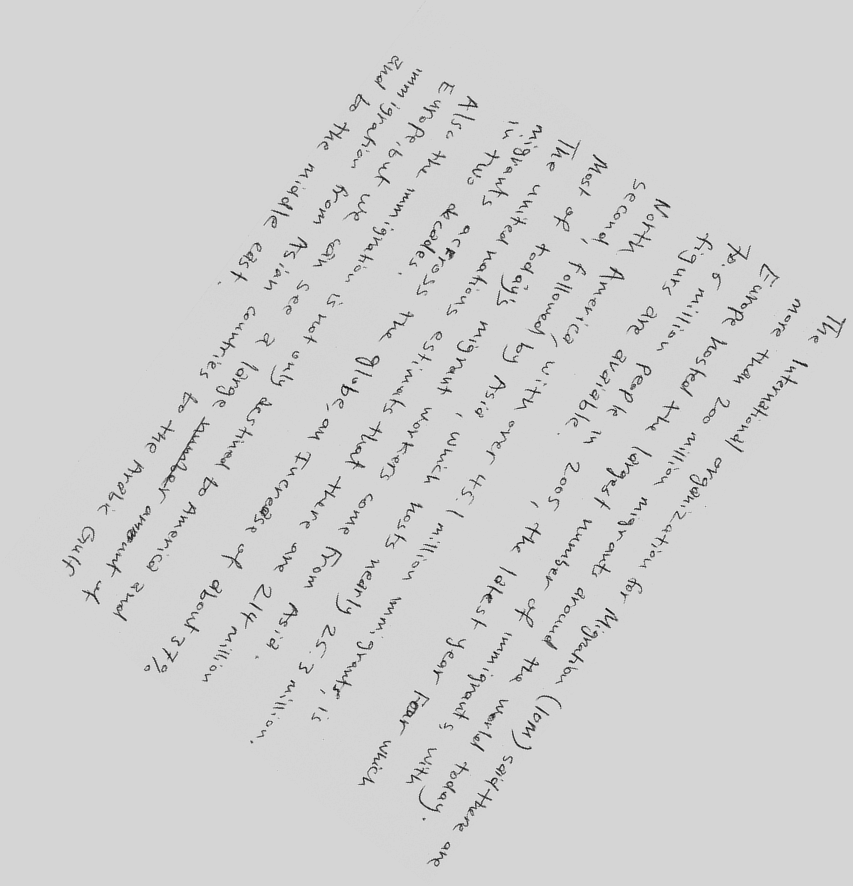 The International organization for Migration (IOM) said there are
more than 200 million migrants around the world today.
Europe hosted the largest number of immigrants with
70.6 million people in 2005, the latest year for which
figurs are avaiable.
North America, with over 45.1 million immigrants, is
second, followed by Asia, which hosts nearly 25.3 million.
Most of today's migrant workers come from Asia.
The united nations estimats that there are 214 million
migrants across the globe, an Increase of about 37%
in two decades.
Also the immigration is not only destined to America and
Europe, but we can see a large number amount of
immigration from Asian countries to the Arabic Gulf
and to the middle east.